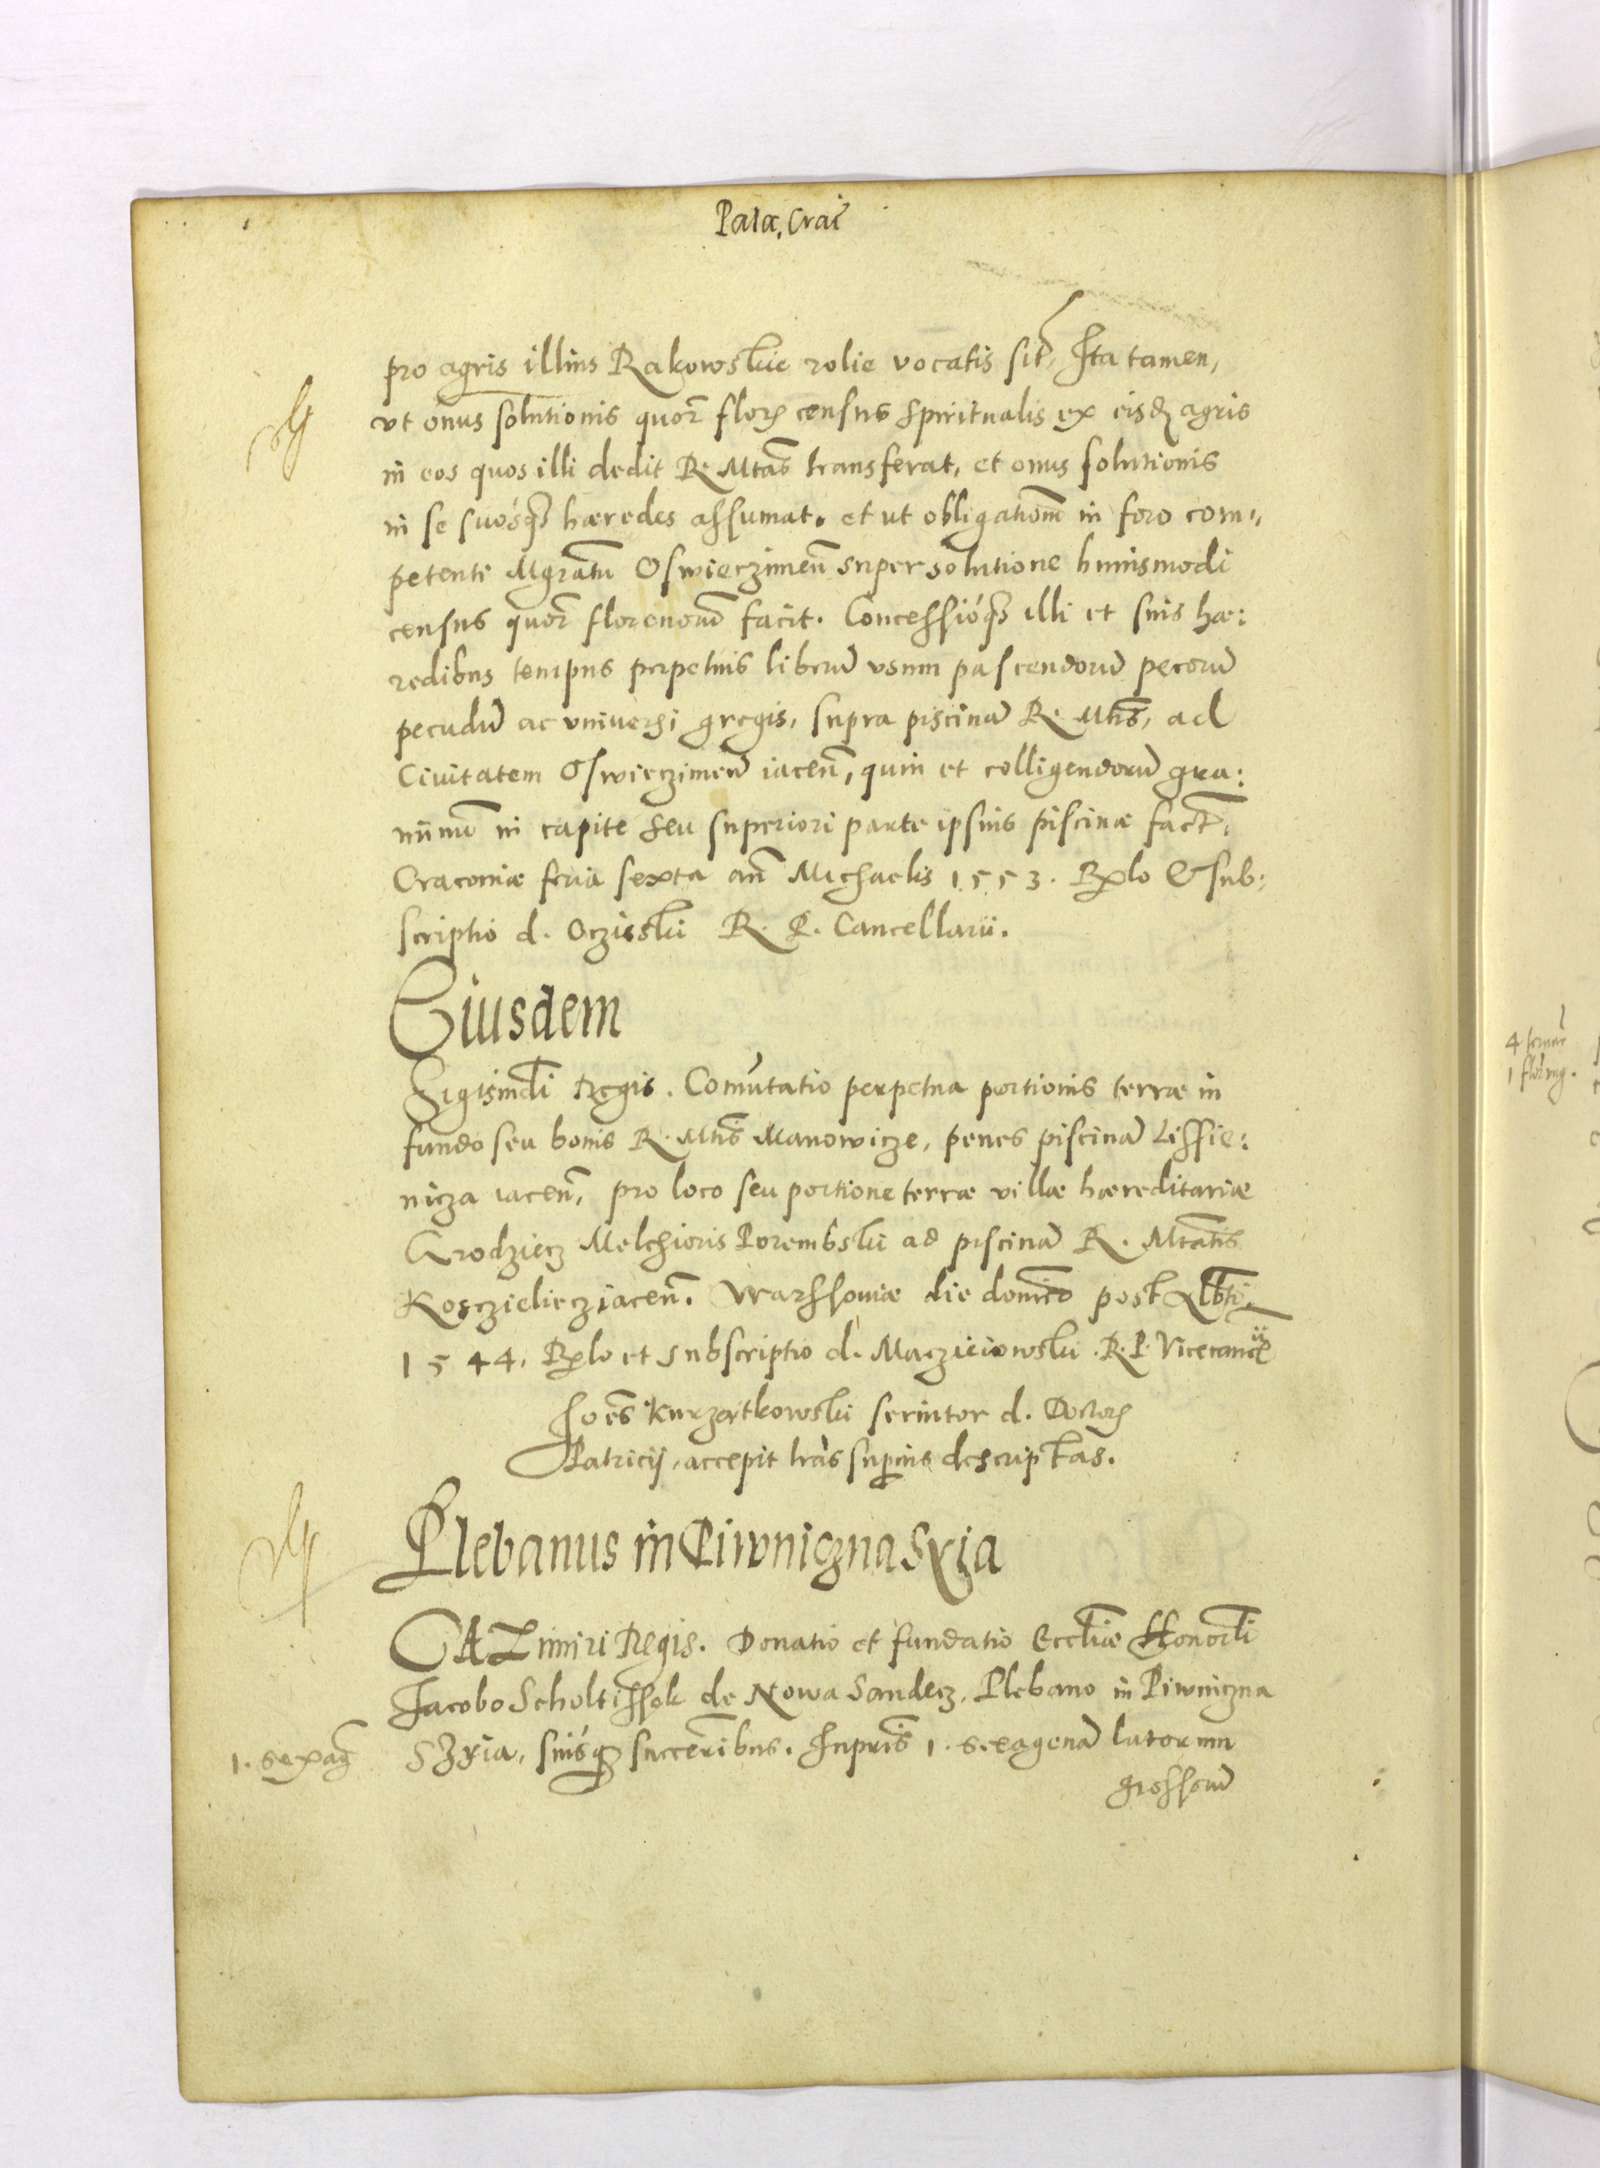 Pala. Crac̃
pro agris illius Rakowskie rolie vocatis sit, Ita tamen,
vt onus solutionis quor̃ floȝ census spiritualis ex eisdȝ agris
in eos quos illi dedit R. Mtas̃ transferat, et onus solutionis
in se suosq̃ hæredes assumat. et ut obligationẽm in foro com„
petenti Mgratũ Oswieczimeñ super solutione huiusmodi
census quor̃ florenorũ facit. Concessioq̃ illi et suis hæ:
redibus tempus perpetuis liberũ vsum pascendorũ pecorũ
pecudũ ac vniuersi gregis, supra piscinã R. Mtis̃, ad
Ciuitatem Oswieczimeñ iaceñ, quin et colligendorũ gra:
minũ in capite seu superiori parte ipsius piscinæ fact̃,
Cracouiæ feria sexta añ Michaelis 1553. Rȩlo & sub:
scriptio d. Oczieski R. P. Cancellarii.
Eiusdem
Sigismd̃i Regis. Com̃utatio perpetua portionis terræ in
fundo seu bonis R. Mtis̃ Manowicze, penes piscinã Lissie:
nicza iaceñ, pro loco seu portione terræ villæ hæreditariæ
Grodziecz Melchioris Porembski ad piscinã R. Mtatis̃
Koscieliecz iaceñ. Warssouiæ die domĩco post Lб̃ti.
1544. Rȩlo et subscriptio d. Macziciowski. R. P. Vicecanc̃ii
Ioẽs Kurzatkowski seruitor d. Doctoȝ
Patricij, accepit lrãs supius descriptas.
Plebanus in Piwniczna Syia
CAZimiri Regis. Donatio et fundatio Eccliæ Honorl̃i
Iacobo Scholtissek de Nowa Sandecz, Plebano in Piwniczna
SZyia, suisq̃ succerĩbus. Inpris̃ 1. sexagenã latorum
1. sexag̃
grossorũ
4
1 flor.